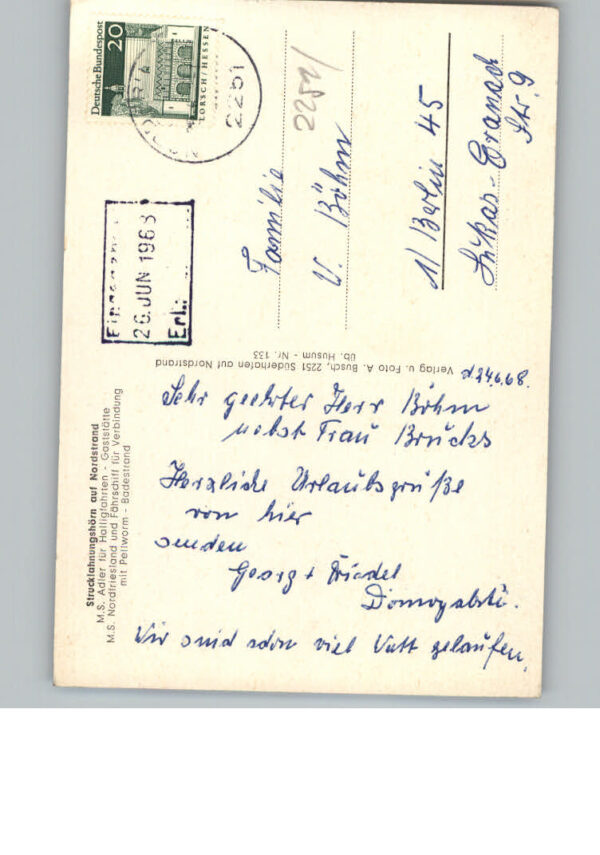 Deutsche Bundespost
20
LORSCH/HESSEN
2251
2251/
26. JUN 1968
Familie
W. Böhm
1/ Berlin 45
Lukas-Cranach
Str. 9
Verlag u. Foto A. Busch, 2251 Süderhafen auf Nordstrand
üb. Husum - Nr. 133
Strucklahnungshörn auf Nordstrand
M.S. Adler für Halligfahrten - Gaststätte
M.S. Nordfriesland und Fährschiff für Verbindung
mit Pellworm - Badestrand
d. 24.6.68.
Sehr geehrter Herr Böhm
nebst Frau Brucks
Herzliche Urlaubsgrüße
von hier
senden
Georg + Friedel
Wir sind schon viel Watt gelaufen.